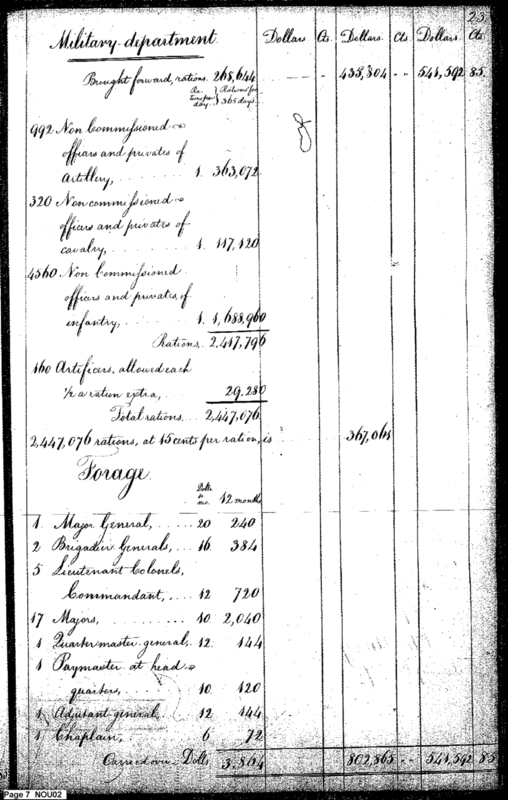 23
Military department. Dollars Cts. Dollars. Cts Dollars. Cts
Brought forward, rations. 268,644 435,804 .. 541,592 85.
Ra-tions per day. } Rations for 366 days.
992 Non Commissioned
officers and privates of
Artillery, 1. 363,072
320 Non commissioned
officers and privates of
cavalry, 1. 117,120
4560 Non Commissioned
officers and privates, of
infantry, 1. 1,668,960
Rations. 2,417,796
160 Artificers, allowed each
1/2 a ration extra, 29,280
Total rations, 2,447,076
2,447,076 rations, at 15 cents per ration, is 367,061
Forage.
Dolls. 12 months
1 Major General, 20 240
2 Brigadier Generals, 16 384
5 Lieutenant Colonels,
Commandant, 12 720
17 Majors, 10 2,040
1 Quarter master general, 12 144
1 Paymaster at head
quarters, 10 120
1 Adjutant general, 12 144
1 Chaplain, 6 72
Carried over Dolls 3,864 802,865 .. 541,592 85
Page 7 NOU02